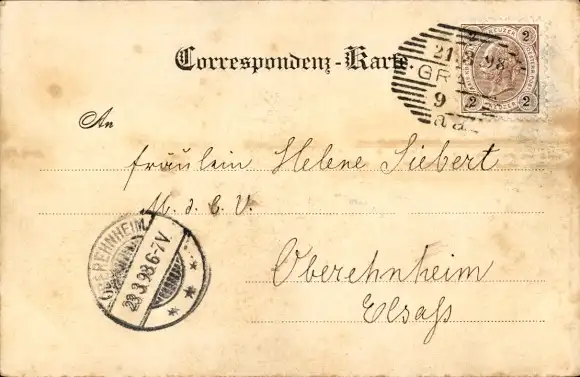 Correspondenz-Karte.
21.3.98
GR
9
2 2
2 2
An
Fräulein Helene Siebert
M. d. E. V.
OBEREHNHEIM
23.3.98.6-7V.
Oberehnheim
Elsaß